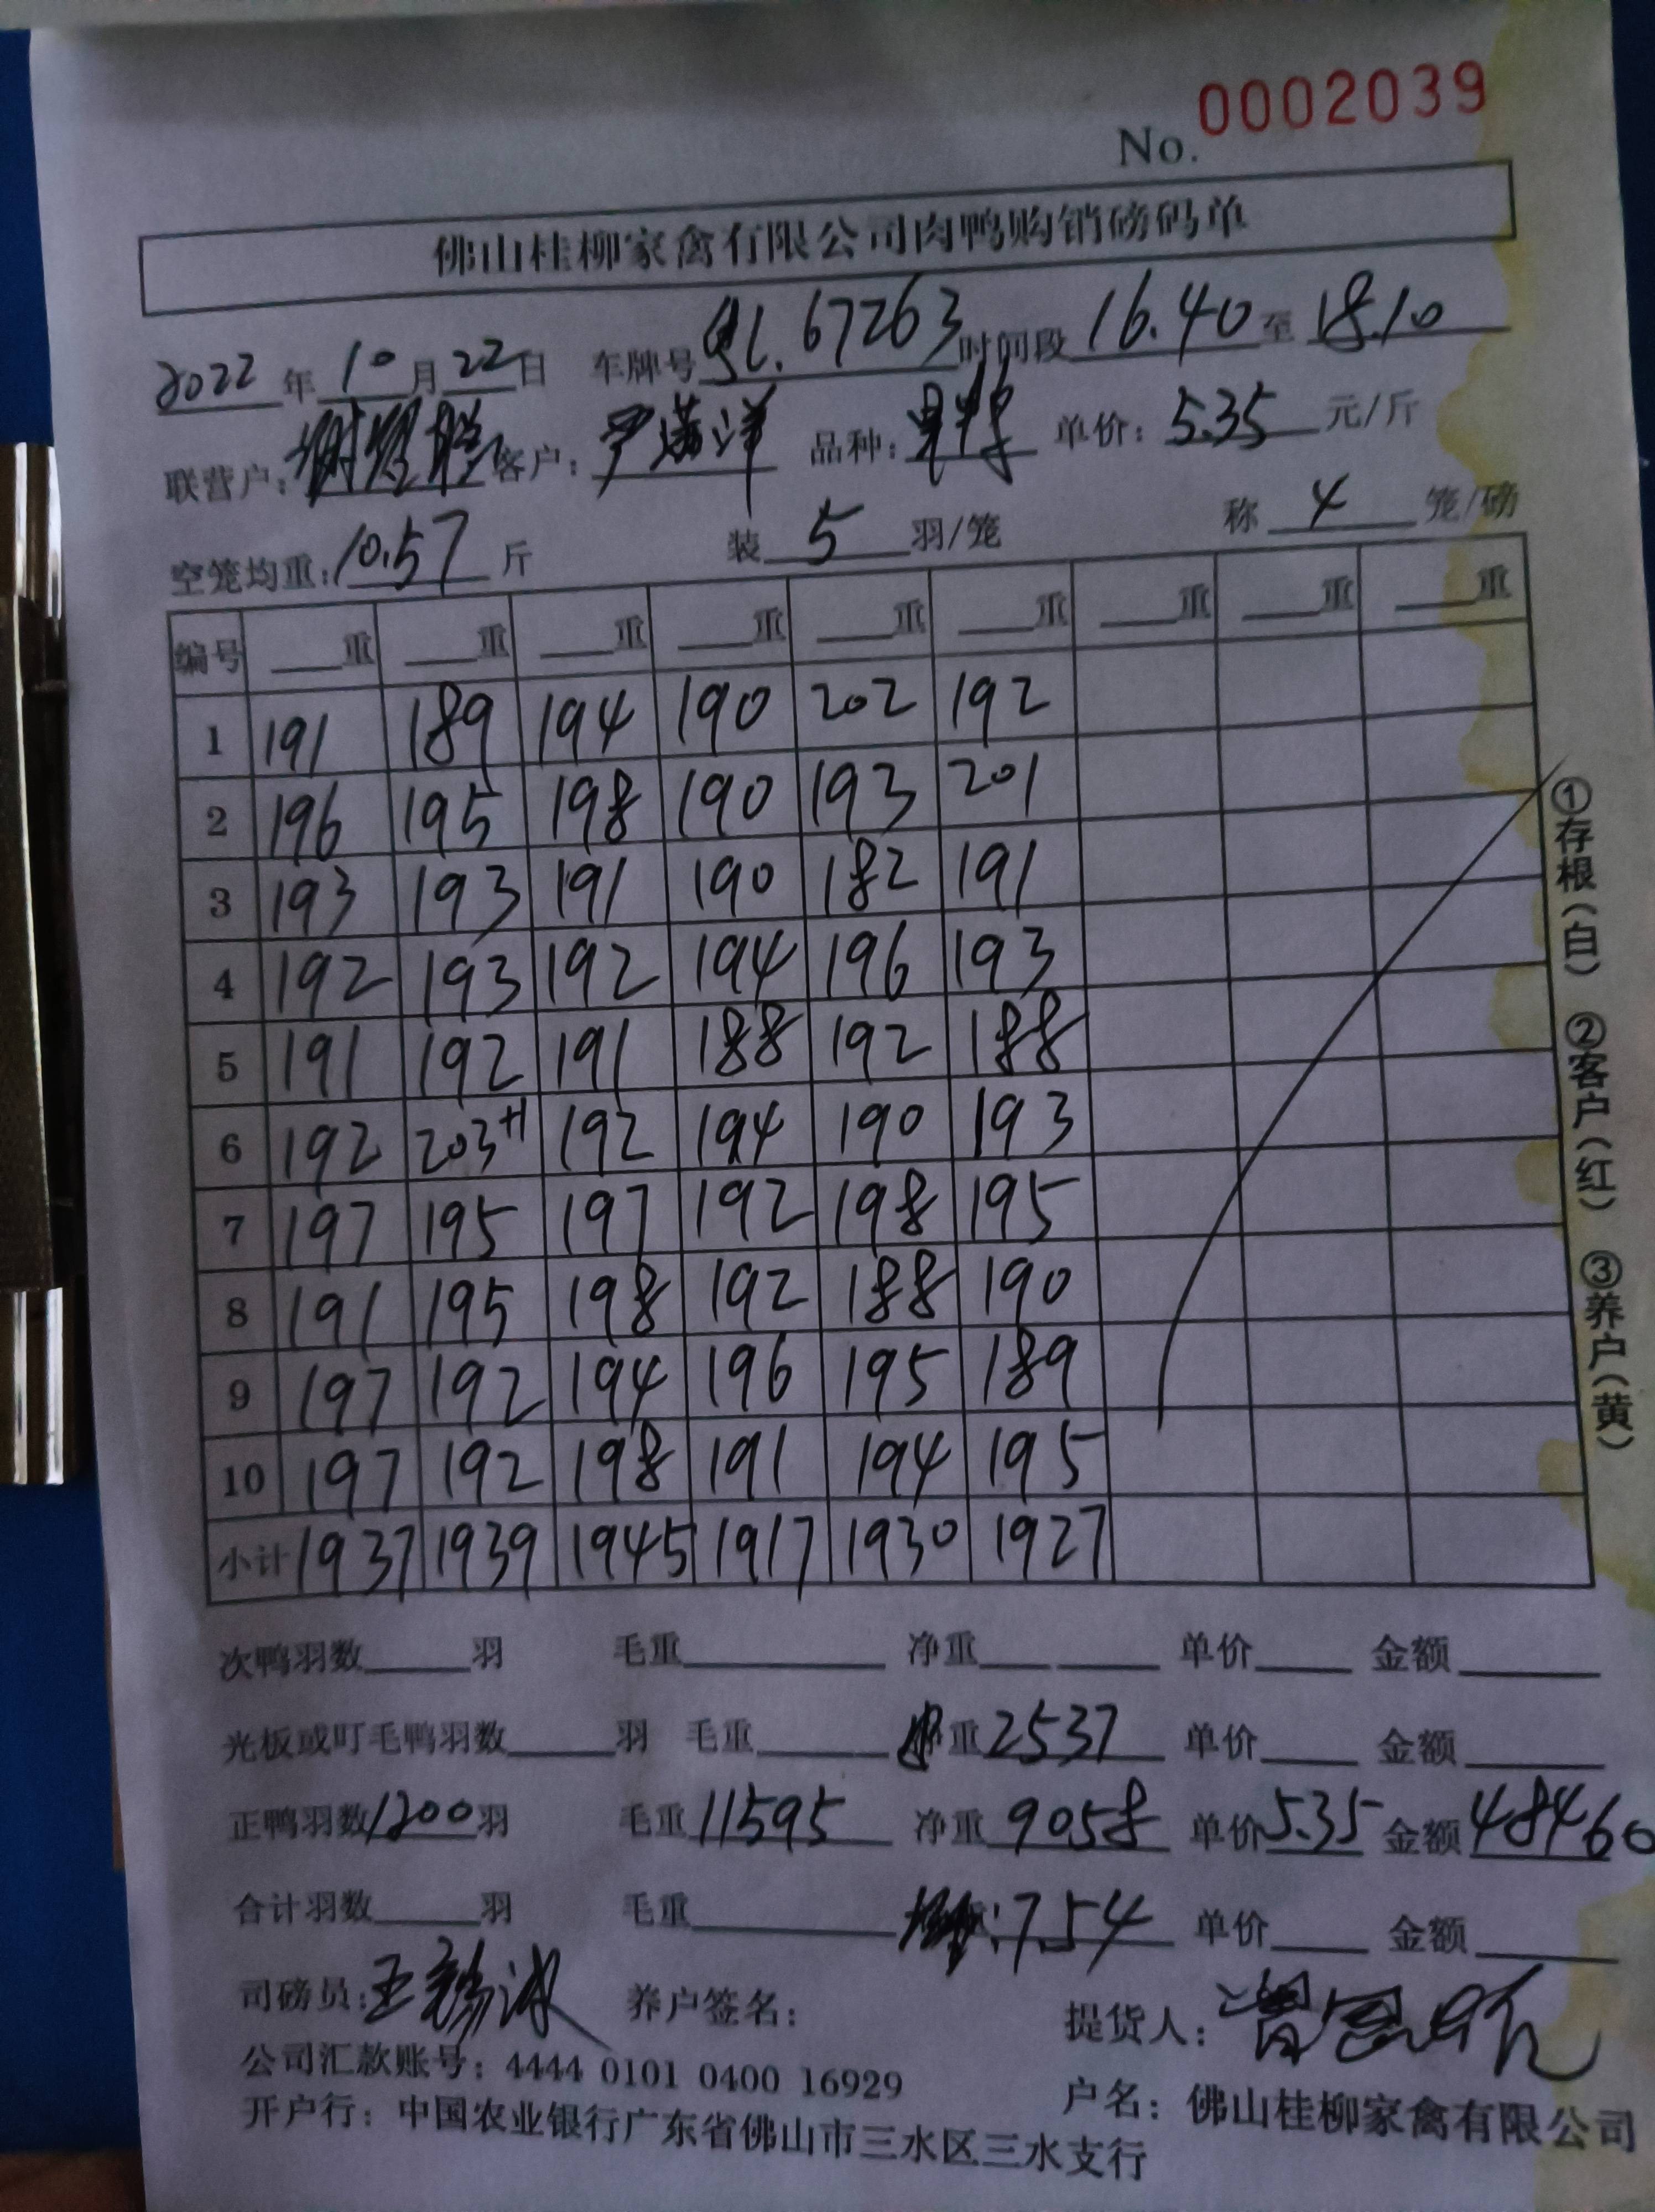 No. 0002039
佛山桂柳家禽有限公司肉鸭购销磅码单
2022年10月22日 车牌号 67263 时间段 16.40 至 18.10
联营户: 客户: 尹 洋 品种: 单价: 5.35 元/斤
空笼均重: 10.57 斤 装 5 羽/笼 称 4 笼/磅
编号 重 重 重 重 重 重 重 重 重
1 191 189 194 190 202 192
2 196 195 198 190 193 201
3 193 193 191 190 182 191
4 192 193 192 194 196 193
5 191 192 191 188 192 188
6 192 203+1 192 194 190 193
7 197 195 197 192 198 195
8 191 195 198 192 188 190
9 197 192 194 196 195 189
10 197 192 198 191 194 195
小计 1937 1939 1945 1917 1930 1927
①存根(白) ②客户(红) ③养户(黄)
次鸭羽数 羽 毛重 净重 单价 金额
光板或叮毛鸭羽数 羽 毛重 重 2537 单价 金额
正鸭羽数 1200 羽 毛重 11595 净重 9058 单价 5.35 金额 48460
合计羽数 羽 毛重 : 7.54 单价 金额
司磅员: 王 养户签名: 提货人: 曾
公司汇款账号: 4444 0101 0400 16929
户名: 佛山桂柳家禽有限公司
开户行: 中国农业银行广东省佛山市三水区三水支行